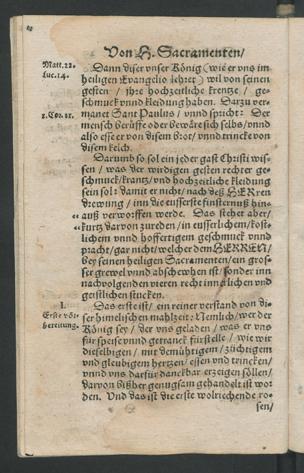 Von H. Sacramenten/
Matt. 22.
Luc. 14.
Dann diser vnser König (wie er vns im
heiligen Euangelio lehret) wil von seinen
gesten / ihre hochzeitliche krentze / ge-
schmuck vnnd kleidung haben. Darzu ver-
1. Cor. 11.
manet Sant Paulus / vnnd spricht: Der
mensch brüffe oder bewäre sich selbs / vnnd
also esse er von disem brot / vnnd trincke von
disem kelch.
Darumb so sol ein jeder gast Christi wis-
sen / was der wirdigen gesten rechter ge-
schmuck / krantz / vnd hochzeitliche kleidung
sein sol: damit er nicht / nach deß HERren
drewung / inn die eusserste finsternuß hin-
auß verworffen werde. Das stehet aber /
kurtz darvon zureden / in eusserlichem / köst-
lichem vnnd hoffertigem geschmuck vnnd
pracht / gar nicht / welcher dem HERREN /
bey seinen heiligen Sacramenten / ein gros-
ser grewel vnnd abschewhen ist / sonder inn
nachvolgenden vieren recht innerlichen vnd
geistlichen stucken.
I.
Erste vor-
bereitung.
Das erste ist / ein reiner verstand von di-
ser himelischen mahlzeit: Nemlich / wer der
König sey / der vns geladen / was er vns
für speise vnnd getranck fürstelle / wie wir
dieselbigen / mit demühtigem / züchtigem
vnd gleubigem hertzen / essen vnd trincken /
vnnd vns darfür danckbar erzeigen söllen /
darvon bißher genugsam gehandelt ist wor-
den. Vnd das ist die erste wolriechende ro-
sen /